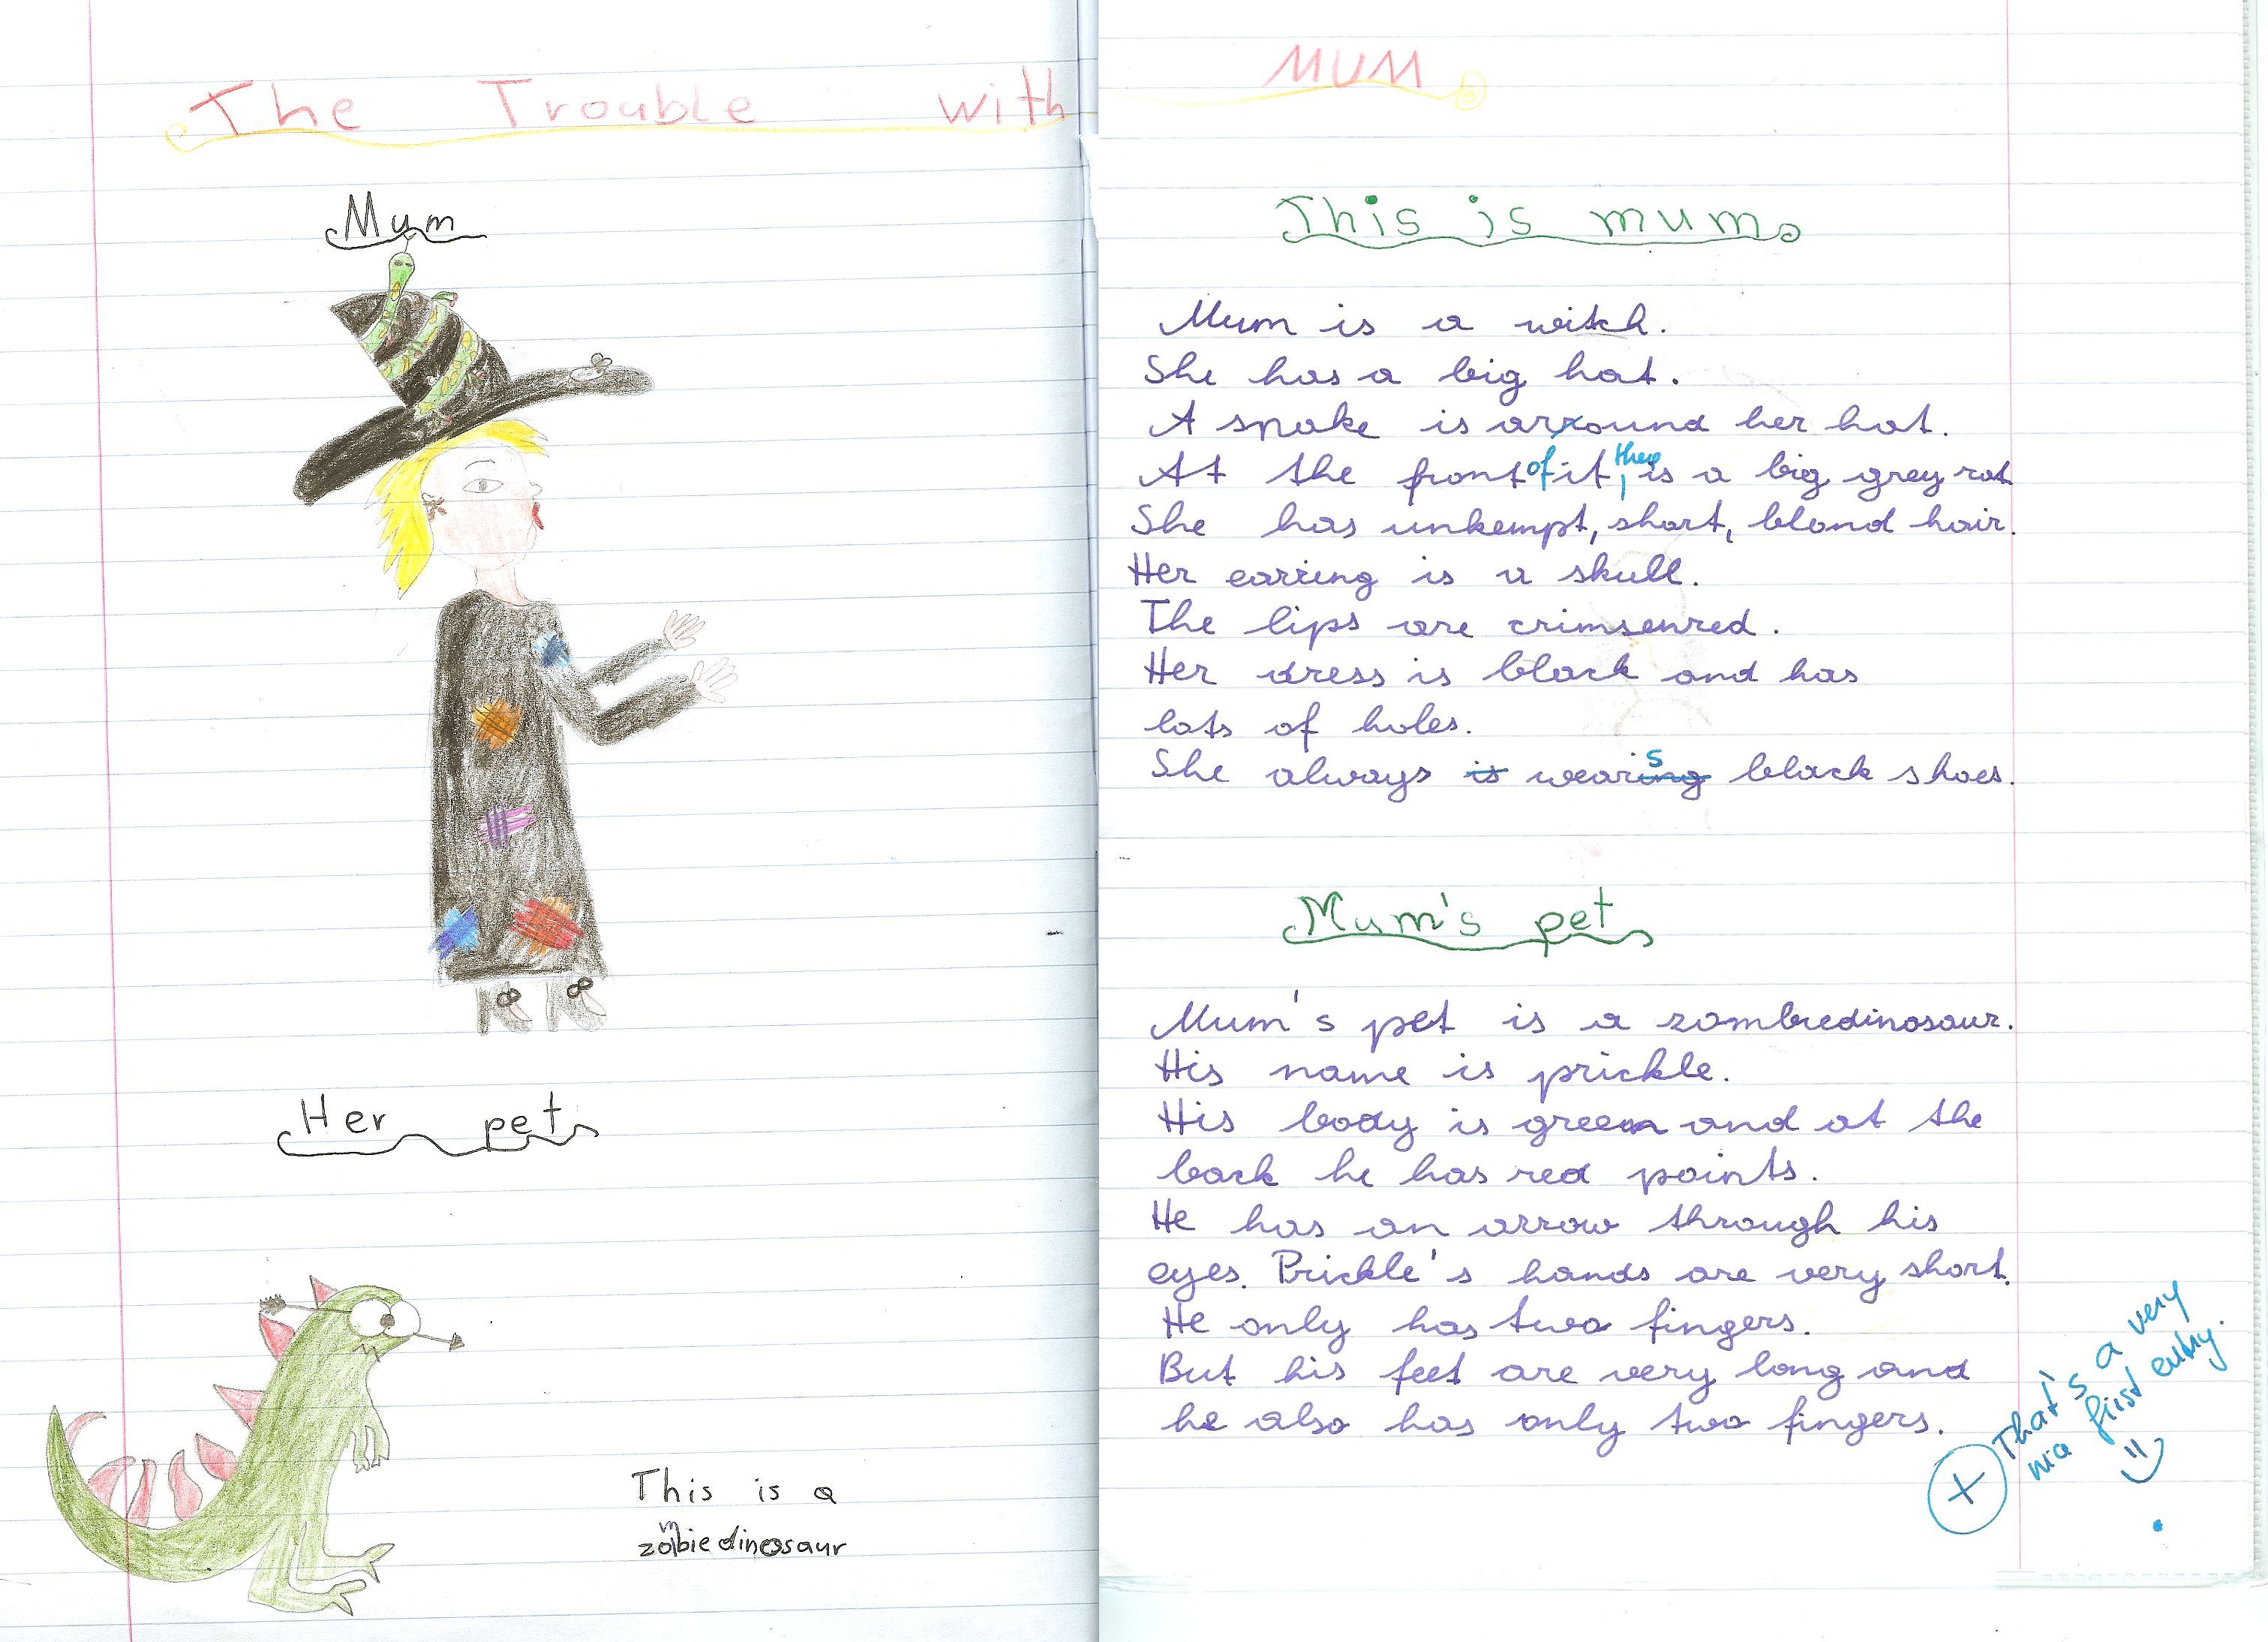 The Trouble with MUM
Mum
Her pet
This is a
zombiedinosaur
This is mum
Mum is a witch.
She has a big hat.
A snake is arround her hat.
At the front of it, there is a big grey rat
She has unkempt, short, blond hair.
Her earring is a skull.
The lips are crimsenred.
Her dress is black and has
lots of holes.
She always is wearing s black shoes.
Mum's pet
Mum's pet is a zombiedinosaur.
His name is prickle.
His body is green and at the
back he has red points.
He has an arrow through his
eyes. Prickle's hands are very short.
He only has two fingers.
But his feet are very long and
he also has only two fingers.
+ That's a very
nice first entry.